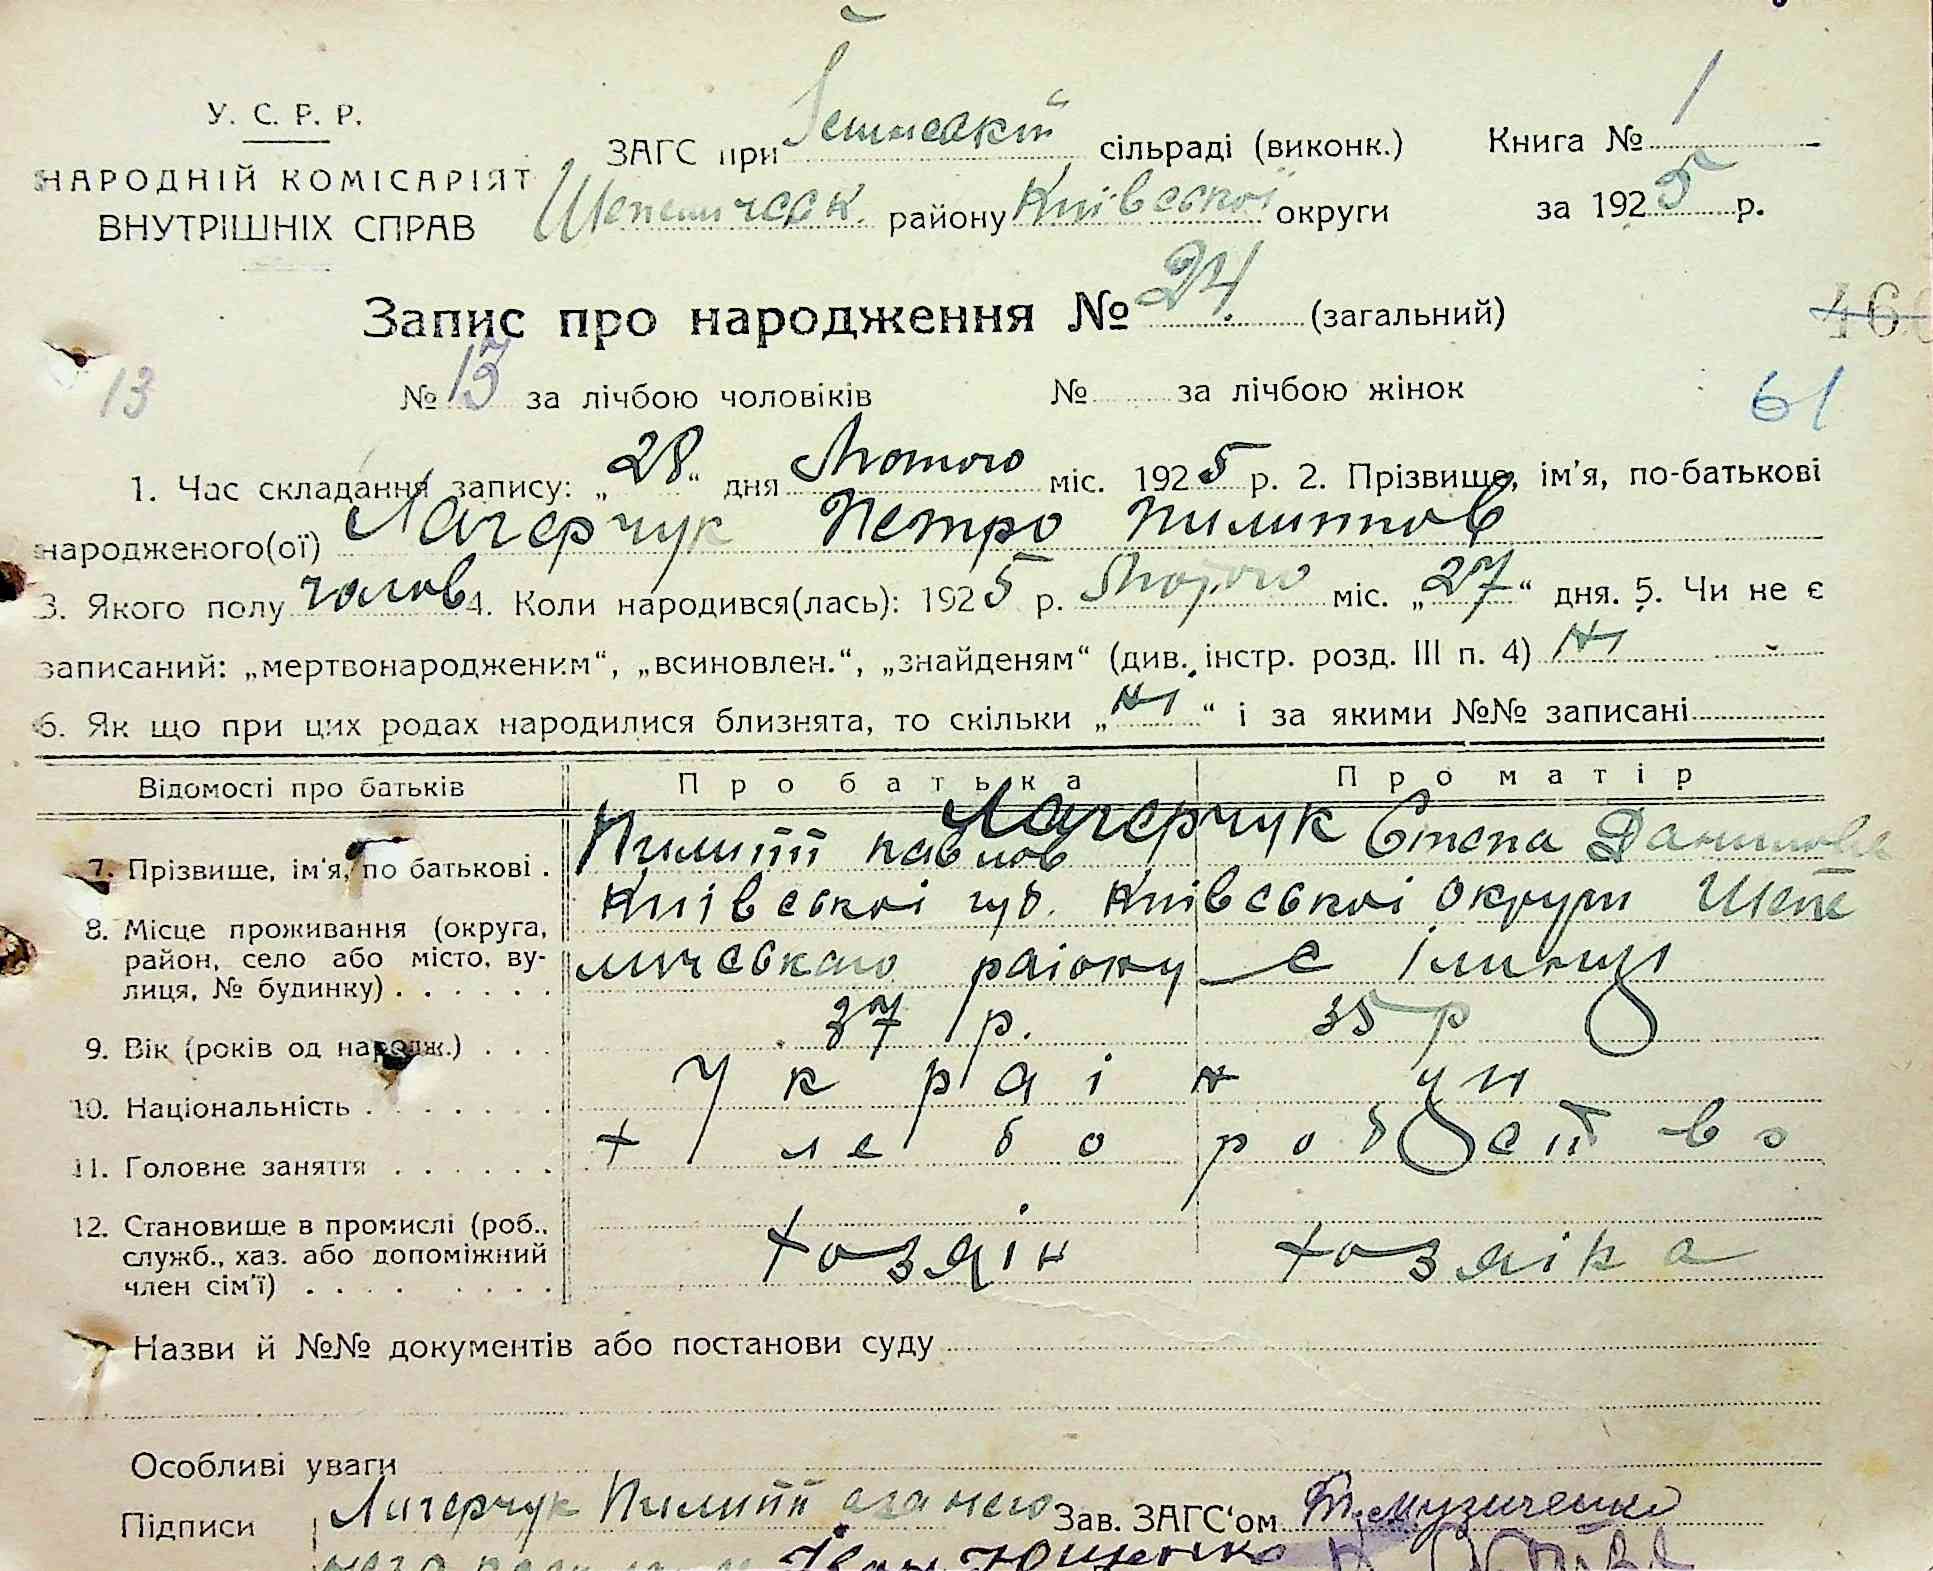 У. С. Р. Р.
НАРОДНІЙ КОМІСАРІЯТ
ВНУТРІШНІХ СПРАВ
ЗАГС при сільраді (виконк.) Книга № 1
Шепелическ. району Київської округи за 1925 р.
Запис про народження № 24 (загальний)
460
13 № 13 за лічбою чоловіків № за лічбою жінок 61
1. Час складання запису: „28“ дня Лютого міс. 1925 р. 2. Прізвище, ім'я, по-батькові
народженого(ої) Лагерчук Петро Пилипов
3. Якого полу чолов 4. Коли народився(лась): 1925 р. Лютого міс. „27“ дня. 5. Чи не є
записаний: „мертвонародженим“, „всиновлен.“, „знайденям“ (див. інстр. розд. III п. 4) Ні
6. Як що при цих родах народилися близнята, то скільки „Ні“ і за якими №№ записані
Відомості про батьків Про батька Про матір
7. Прізвище, ім'я, по батькові . Пилип павлов Лагерчук Степа Данилова
8. Місце проживання (округа, Київської губ. Київської округи Шепе
район, село або місто, ву- личського району с Ілинці
лиця, № будинку) . . . . . .
9. Вік (років од народж.) . . . 37 р. 35 р
10. Національність . . . . . . . Україн
11. Головне заняття . . . . . . хлеборобство
12. Становище в промислі (роб.,
служб., хаз. або допоміжний хозяін хозяіка
член сім'ї) . . . . . . . .
Назви й №№ документів або постанови суду
Особливі уваги
Підписи Лагерчук Пилип Зав. ЗАГС'ом Музиченко
Іван Ющенко